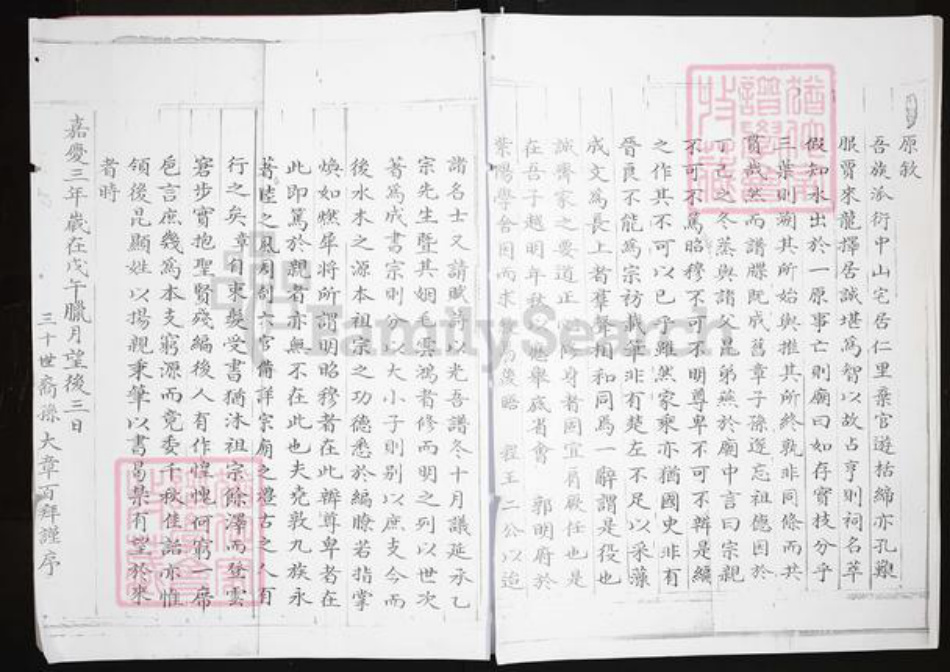 原敘
吾族派衍中山宅居仁里棄官遊括締亦孔艱
眼買來龍擇居誠堪為智以故占亨則祠名萃
假知水出於一原事亡則廟曰如存實技分乎
三葉則溯其所始與推其所終孰非同條而共
貫哉然而譜牒既成舊章子孫遂忘祖德因於
丁己之冬蒸與諸父昆弟燕於廟中言曰宗親
不可不篤昭穆不可不明尊卑不可不辨是編
之作其不可以已乎雖然家乘亦猶國史非有
晉良不能為宗祊載筆非有楚左不足以采藻
成文為長上者羣聲相和同為一辭謂是役也
誠齊家之要道正修身者固宜肩厥任也是
在吾子越明年秋應舉底省會 郭明府於
紫陽學舍因而求 程王二公以迨
諸名士又請賦詩以光吾譜冬十月議延承乙
宗先生暨其姻毛雲鴻者修而明之列以世次
著為成書宗則分以大小子則別以庶支今而
後水木之源本祖宗之功德悉於編瞭若指掌
煥如燃犀將所謂明昭穆者在此辨尊卑者在
此即篤於親者亦無不在此也夫堯敦九族永
著陸之風周制六官備詳宗廟之禮古之人有
行之矣章自束髮受書猶沐祖宗餘澤而登雲
窘步實抱聖賢殘編後人有作惶愧何窮一席
卮言庶幾為本支窮源而竟委千秋佳話亦惟
領後昆顯姓以揚親秉筆以書曷禁有望於來
者時
嘉慶三年歲在戊午臘月望後三日
三十世裔孫大章百拜謹序
FamilySearch